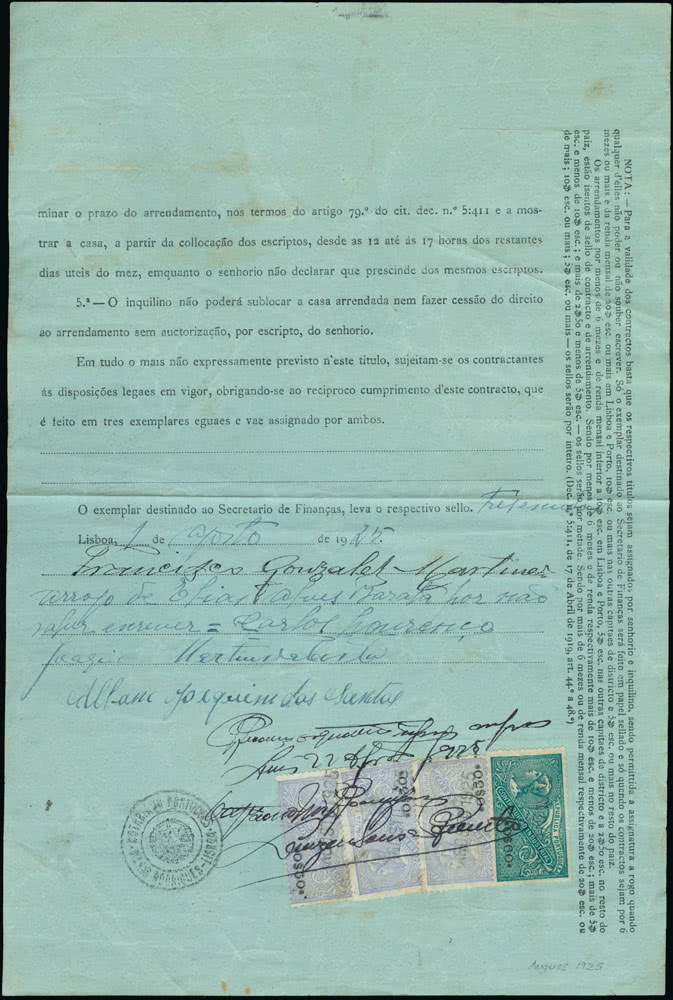 minar o prazo do arrendamento, nos termos do artigo 79.º do cit. dec. n.º 5:411 e a mos-
trar a casa, a partir da collocação dos escriptos, desde as 12 até ás 17 horas dos restantes
dias uteis do mez, emquanto o senhorio não declarar que prescinde dos mesmos escriptos.
5.ª — O inquilino não poderá sublocar a casa arrendada nem fazer cessão do direito
ao arrendamento sem auctorização, por escripto, do senhorio.
Em tudo o mais não expressamente previsto n'este titulo, sujeitam-se os contractantes
ás disposições legaes em vigor, obrigando-se ao reciproco cumprimento d'este contracto, que
é feito em tres exemplares eguaes e vae assignado por ambos.
O exemplar destinado ao Secretario de Finanças, leva o respectivo sello.
Lisboa, 1 de Agosto de 1925.
Francisco Gonzalez Martinez
Arrogo de Elias Alves Barata por não
saber escrever = Carlos Lourenço
Joaquim Martins
Albano Joaquim dos Santos
1925
NOTA: — Para a validade dos contractos basta que os respectivos titulos sejam assignados por senhorio e inquilino, sendo permittida a assignatura a rogo quando
qualquer d'elles não poder ou não souber escrever. Só o exemplar destinado ao Secretario de Finanças será feito em papel sellado e só quando os contractos sejam por 6
mezes ou mais e da renda mensal de 20$ esc. ou mais em Lisboa e Porto, 10$ esc. ou mais nas outras capitaes de districto e 5$ esc. ou mais no resto do paiz.
Os arrendamentos por menos de 6 mezes e de renda mensal inferior a 10$ esc. em Lisboa e Porto, 5$ esc. nas outras capitaes de districto e a 2$50 esc. no resto do
paiz, estão isentos de sello de contracto e de arrendamento. Sendo por menos de 6 mezes e de renda respectivamente mais de 10$ esc. e menos de 20$ esc.; mais de 5$
esc. e menos de 10$ esc.; e mais de 2$50 e menos de 5$ esc. — os sellos serão por metade. Sendo por mais de 6 mezes e de renda mensal respectivamente de 20$ esc. ou
de mais; 10$ esc. ou mais; 5$ esc. ou mais — os sellos serão por inteiro. (Dec. n.º 5:411, de 17 de Abril de 1919, art. 44.º a 48.º)
1925